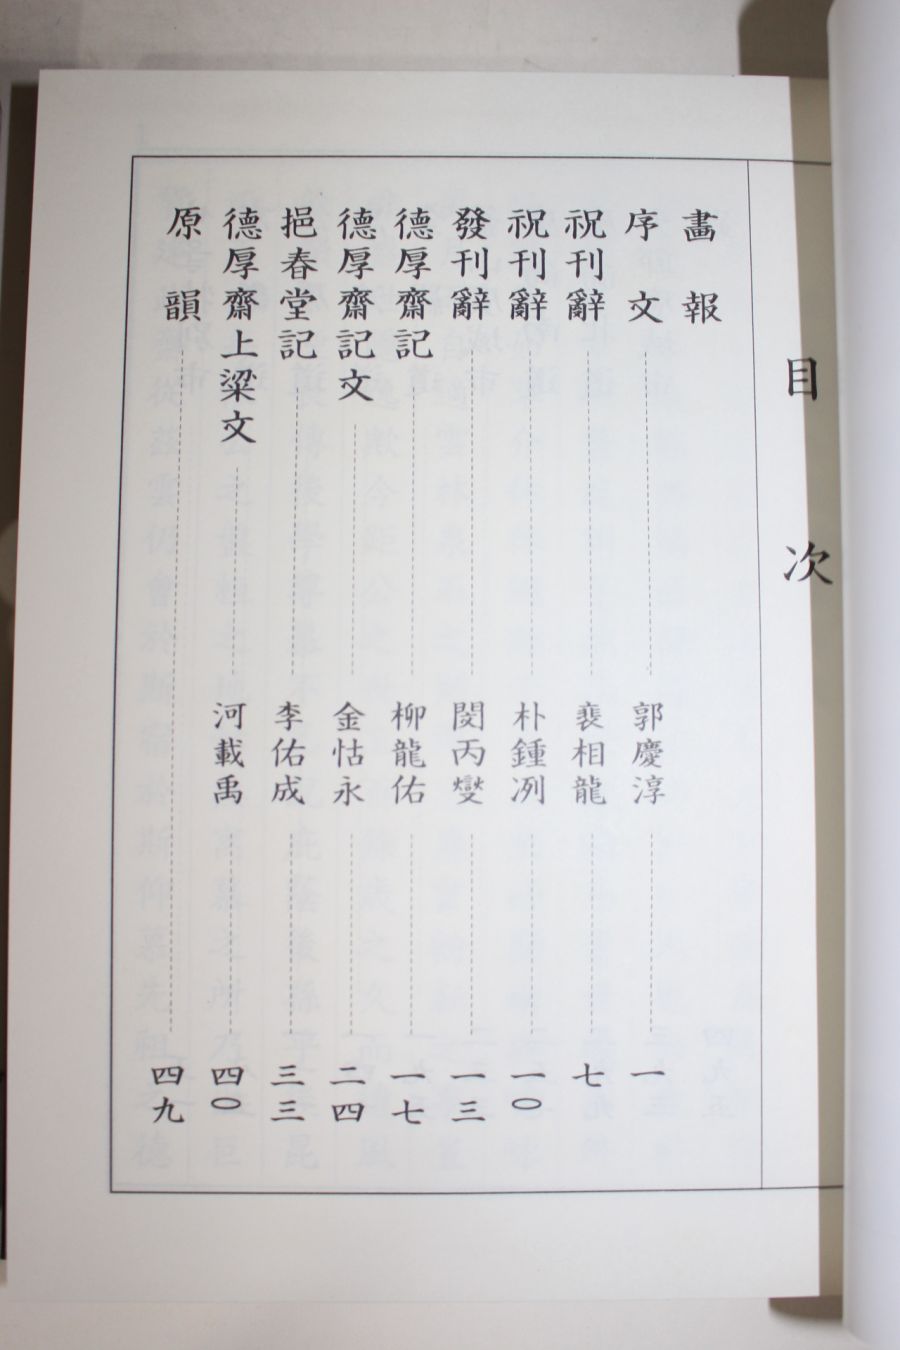 目次
畫報
序文 郭慶淳 一
祝刊辭 裵相龍 七
祝刊辭 朴鍾冽 一〇
發刊辭 閔丙燮 一三
德厚齋記 柳龍佑 一七
德厚齋記文 金怙永 二四
挹春堂記 李佑成 三三
德厚齋上梁文 河載禹 四〇
原韻 四九